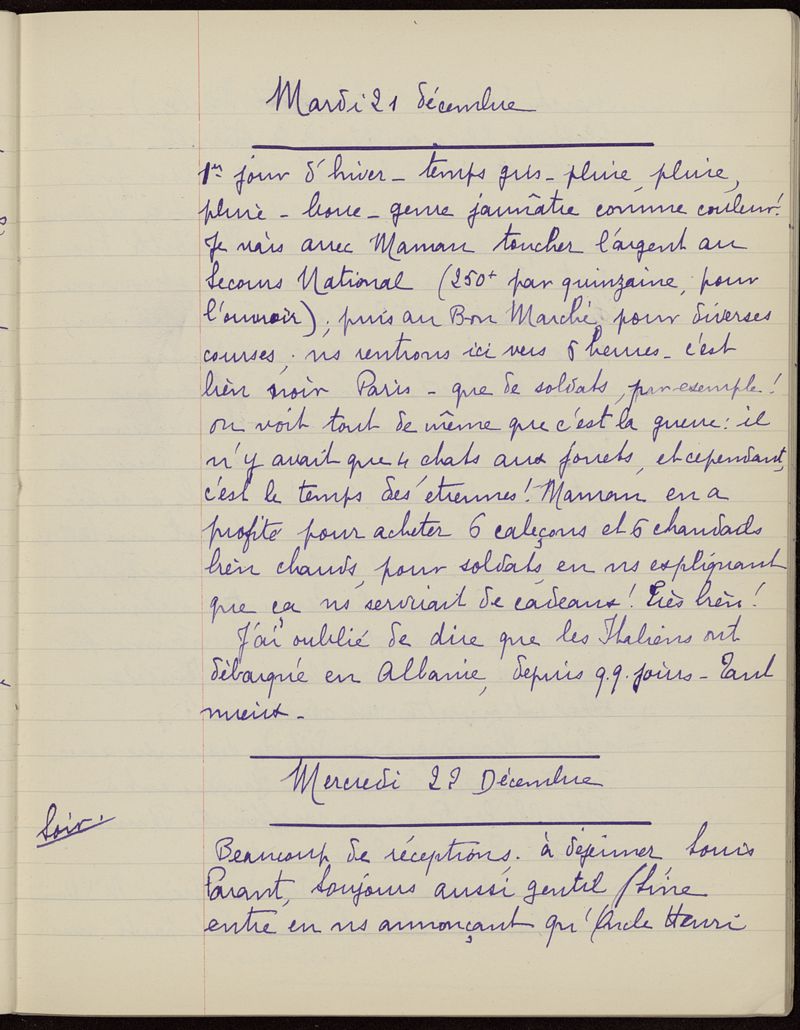 Mardi 21 décembre
1er jour d'hiver - temps gris - pluie, pluie,
pluie - boue - genre jaunâtre comme couleur!
Je vais avec Maman toucher l'argent au
Secours National (250f par quinzaine, pour
l'ouvroir); puis au Bon Marché, pour diverses
courses; ns rentrons ici vers 6 heures - c'est
bien noir Paris - que de soldats, par exemple!
on voit tout de même que c'est la guerre: il
n'y avait que 4 chats aux jouets, et cependant,
c'est le temps des étrennes! Maman en a
profité pour acheter 6 caleçons et 6 chandails
bien chauds, pour soldats, en ns expliquant
que ça ns servirait de cadeaux! Très bien!
J'ai oublié de dire que les Italiens ont
débarqué en Albanie, depuis q.q. jours - Tant
mieux -
Mercredi 22 Décembre
Soir.
Beaucoup de réceptions. à déjeuner Louis
Parant, toujours aussi gentil
entre en ns annonçant qu'Oncle Henri